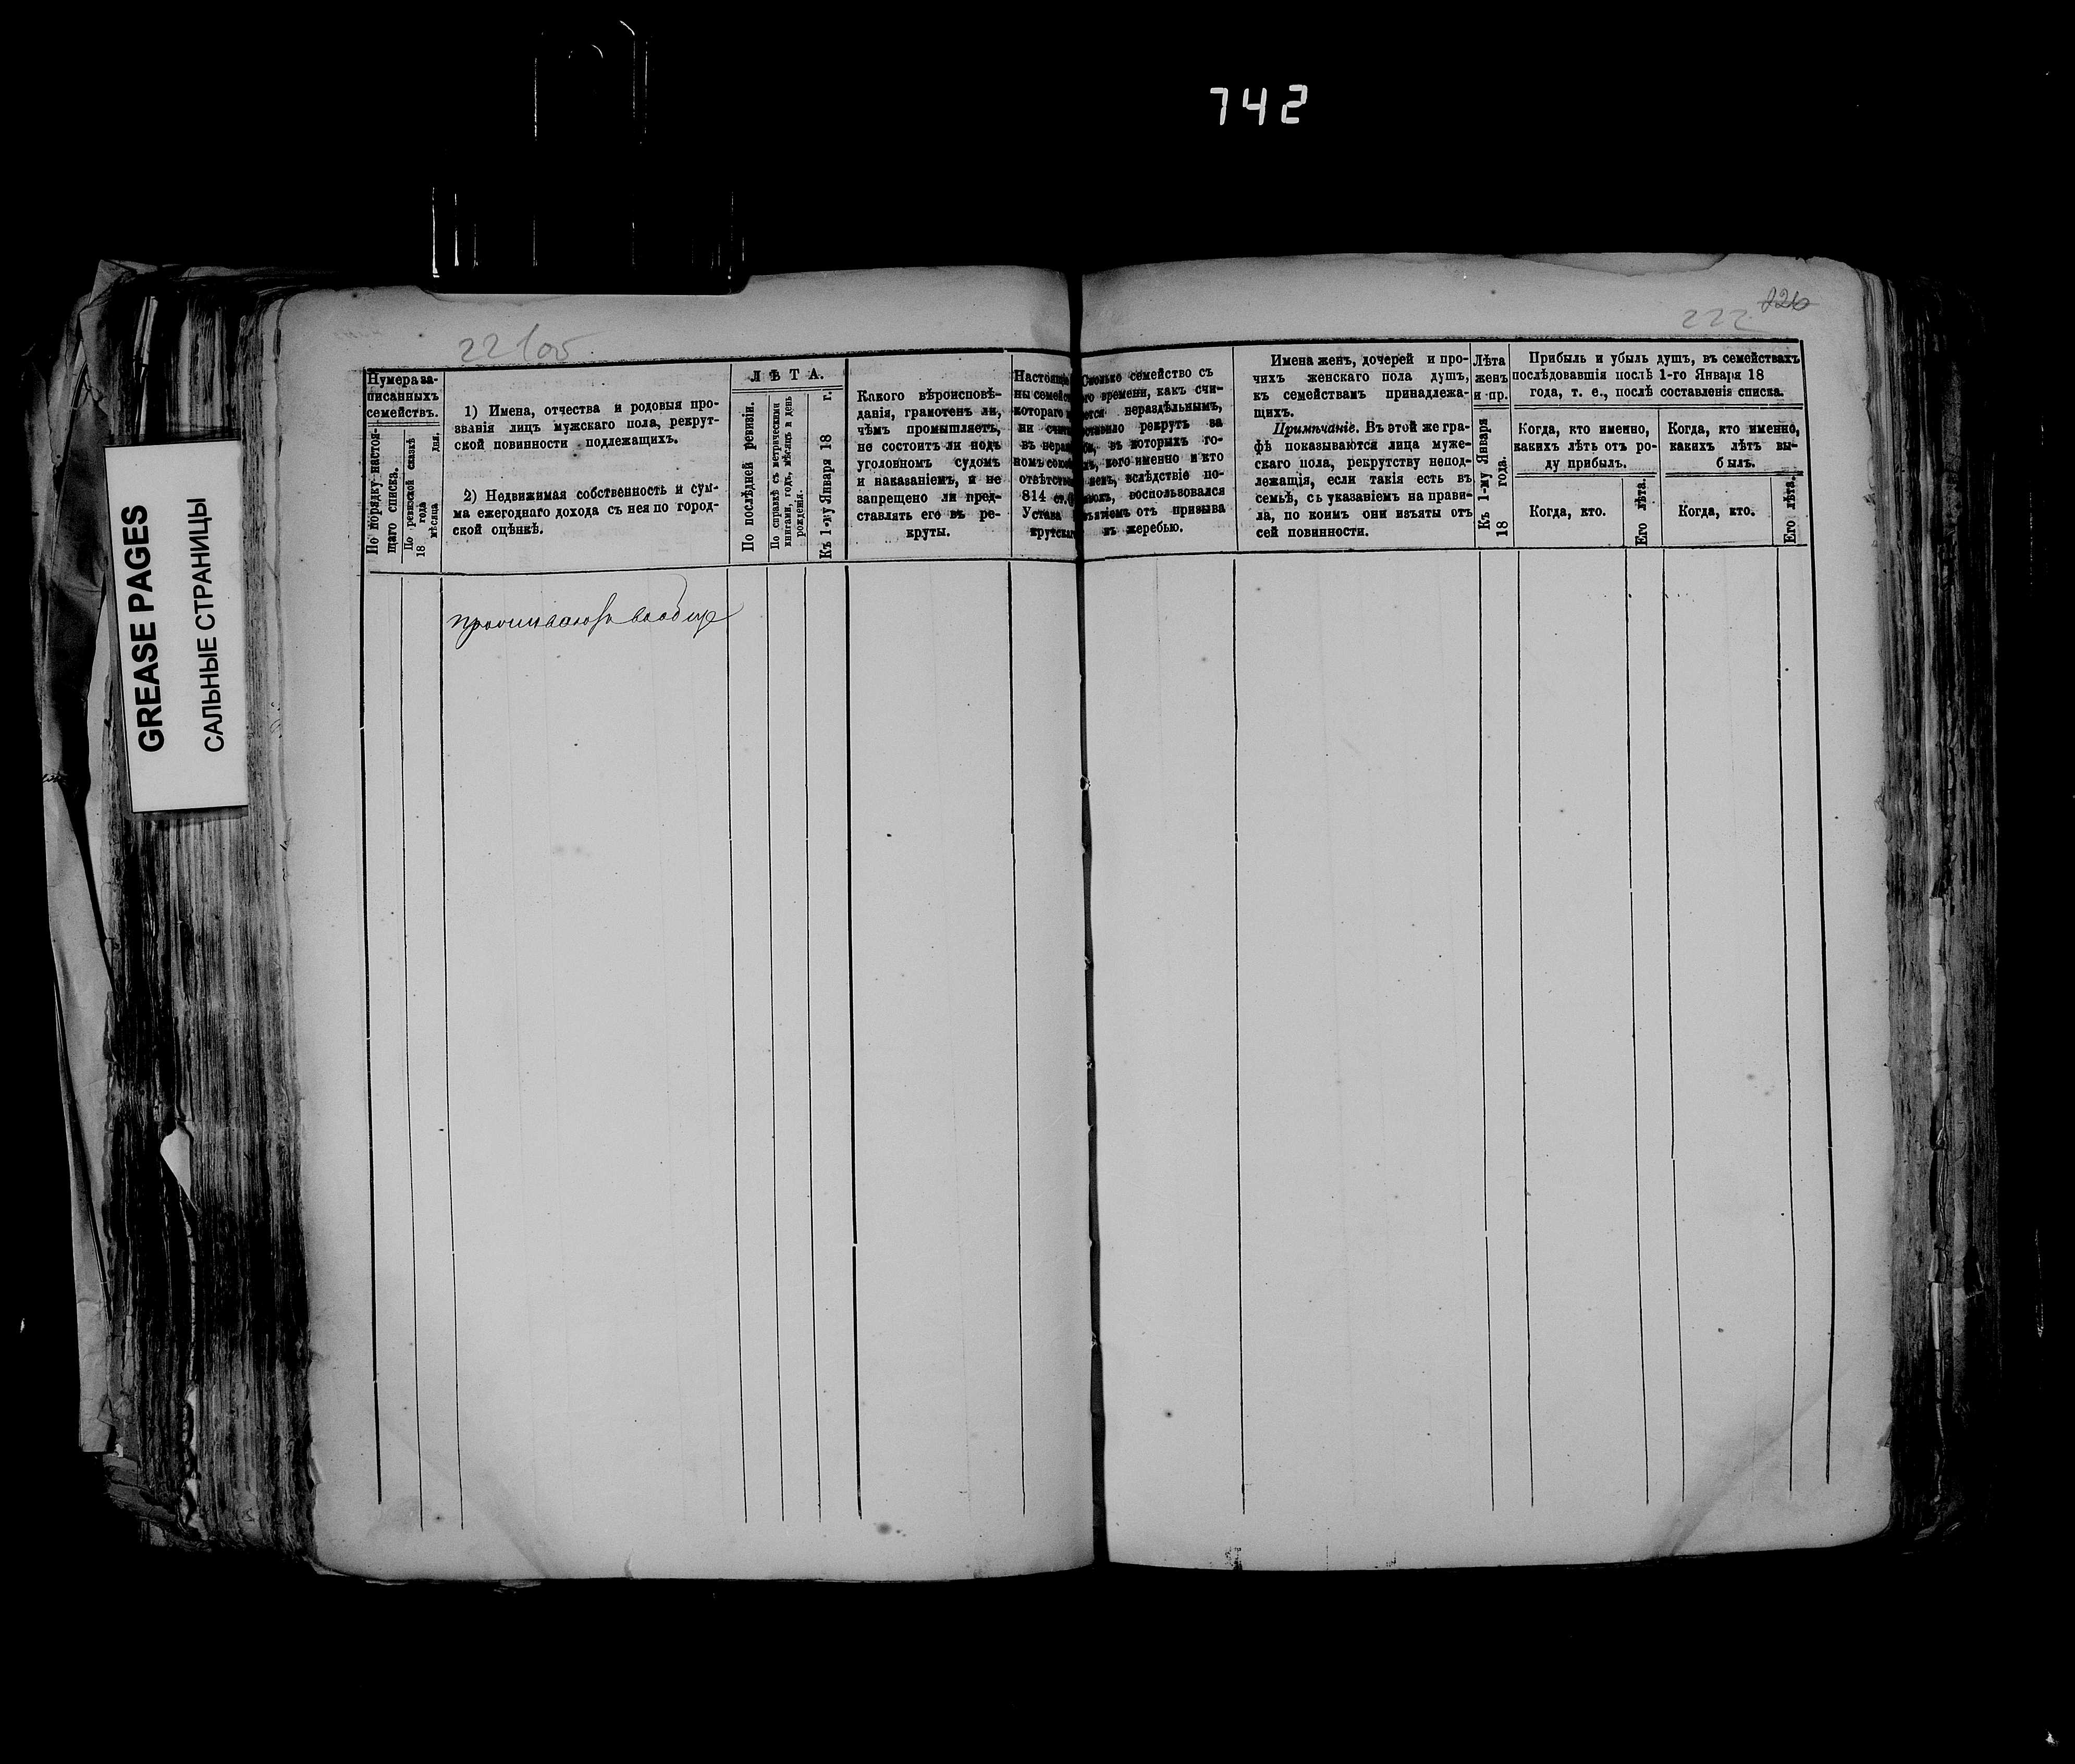 742
GREASE PAGES
САЛЬНЫЕ СТРАНИЦЫ
221об
222
826
Нумера за-
писанныхъ
семействъ.
По порядку настоя-
щаго списка.
По ревизской сказкѣ
18 года
мѣсяца дня.
1) Имена, отчества и родовыя про-
званія лицъ мужскаго пола, рекрут-
ской повинности подлежащихъ.
2) Недвижимая собственность и сум-
ма ежегоднаго дохода съ нея по город-
ской оцѣнкѣ.
ЛѢТА.
По послѣдней ревизіи.
По справкѣ съ метрическими
книгами, годъ, мѣсяцъ и день
рожденія.
Къ 1-му Января 18 г.
Какого вѣроисповѣ-
данія, грамотенъ ли,
чѣмъ промышляетъ,
не состоитъ ли подъ
уголовномъ судомъ
и наказаніемъ, и не
запрещено ли пред-
ставлять его въ ре-
круты.
Настоящ
ны семейс
котораго
ни счит
въ нераз
номъ союз
отвѣтств
814 ст.
Устава
крутскаг
Сколько семейство съ
го времени, какъ счи-
ется нераздѣльнымъ,
ставило рекрутъ за
въ которыхъ го-
кого именно и кто
вслѣдствіе по-
воспользовался
изъятіемъ отъ призыва
къ жеребью.
Имена женъ, дочерей и про-
чихъ женскаго пола душъ,
къ семействамъ принадлежа-
щихъ.
Примѣчаніе. Въ этой же гра-
фѣ показываются лица муже-
скаго пола, рекрутству непод-
лежащія, если такія есть въ
семьѣ, съ указаніемъ на прави-
ла, по коимъ они изъяты отъ
сей повинности.
Лѣта
женъ
и пр.
Къ 1-му Января
18 года.
Прибыль и убыль душъ, въ семействахъ
послѣдовавшія послѣ 1-го Января 18
года, т. е., послѣ составленія списка.
Когда, кто именно,
какихъ лѣтъ отъ ро-
ду прибылъ.
Когда, кто.
Его лѣта.
Когда, кто именно,
какихъ лѣтъ вы-
былъ.
Когда, кто.
Его лѣта.